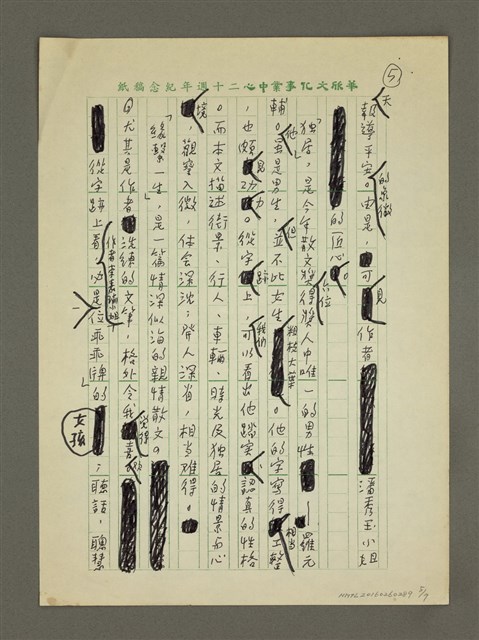 華欣文化事業中心二十週年紀念稿紙
⑤
報導平实。由是,可見作者潘秀玉小姐
的匠心。
「獨居」是今年散文獎得獎人中唯一的一位男性——羅元
輔。雖是男生,但並不比女生粗枝大葉。他的字寫得相当工整
,也頗見功力。從字跡上,我們可以看出他踏实認真的性格
。而本文描述街景、行人、車輛、時光及独居的情景与心
境,觀察入微,体会深沈;發人深省,相当难得。
「緣繫一生」,是一篇情深似海的親情散文。
尤其是作者洗練的文筆,格外令我覺得
從字跡上看,作者李嘉小姐是位乖乖牌的女孩;聽話,聰慧
NMTL20160260289 5/9